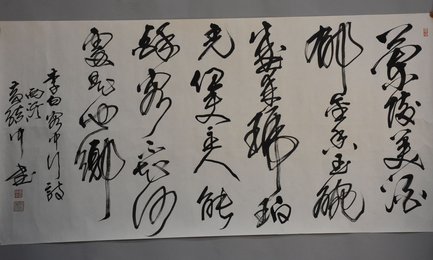 蘭陵美酒
郁金香玉碗
盛來琥珀
光但使主人能
醉客不知何
處是他鄉
李白客中行詩